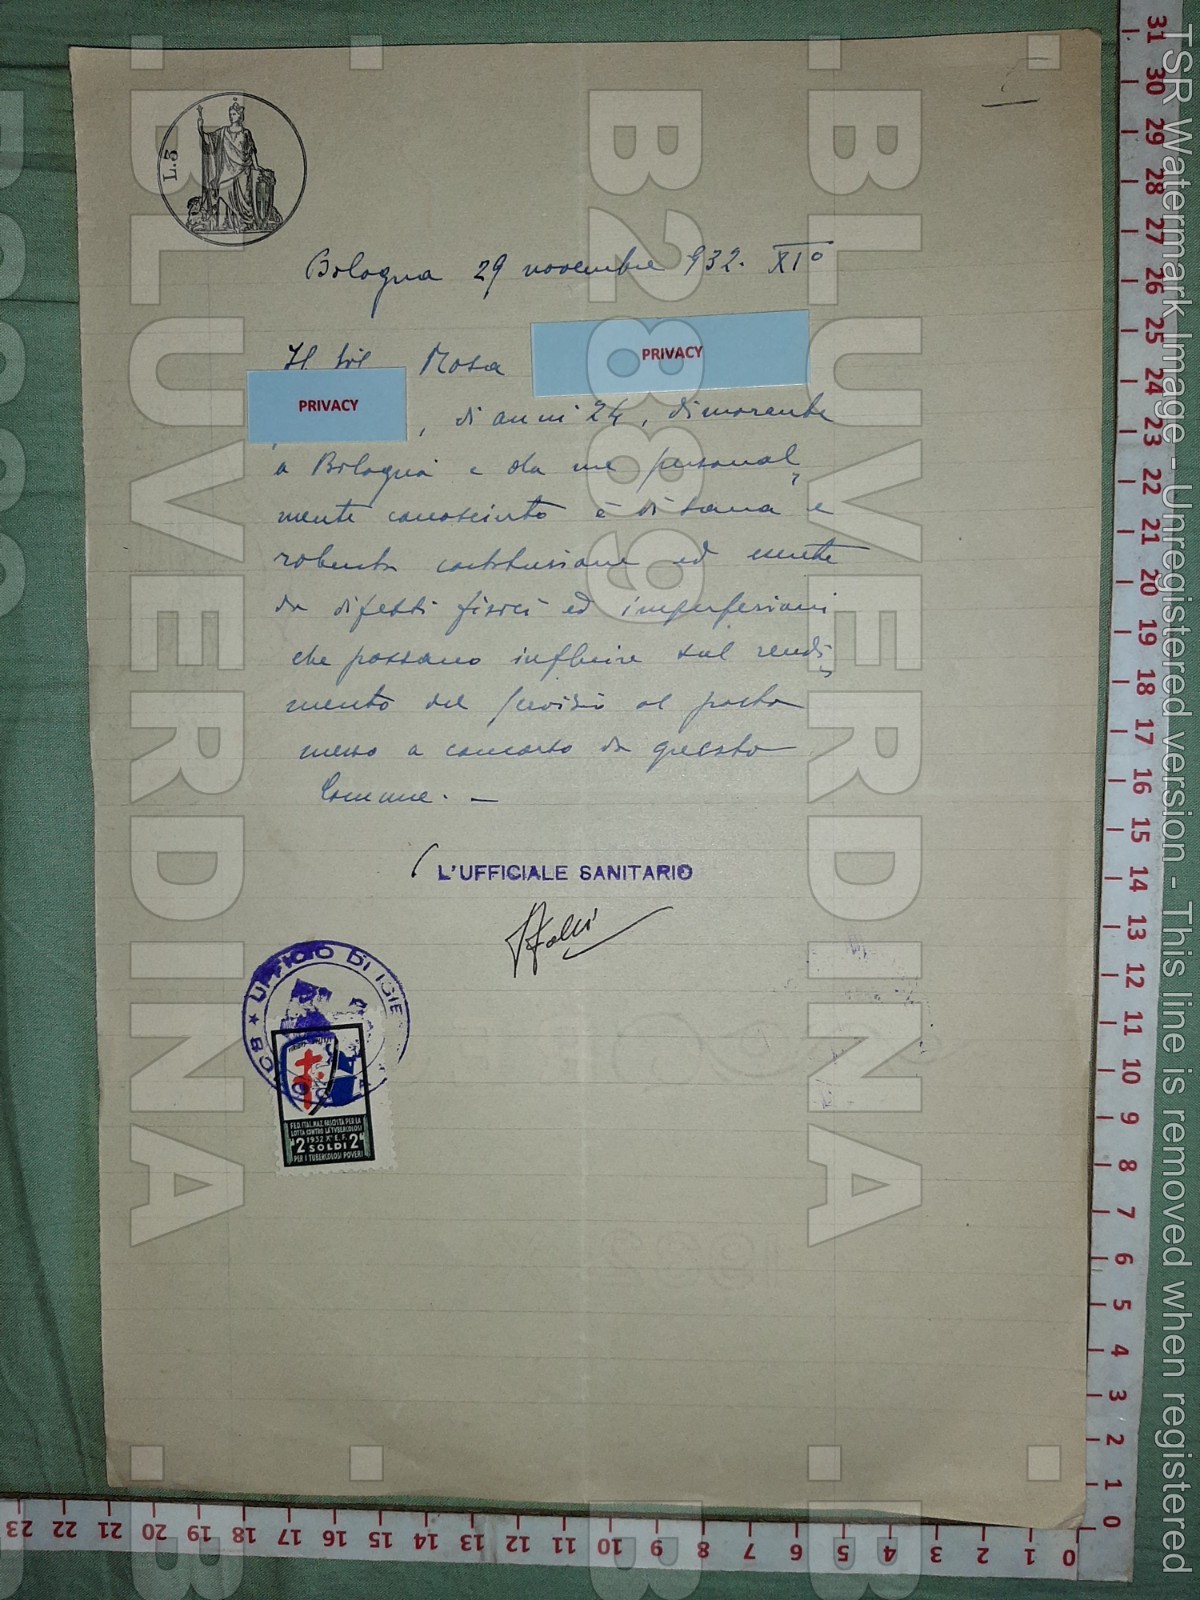 L.5
Bologna 29 novembre 932. XI°
Il Mosa
PRIVACY
PRIVACY
, di anni 24, dimorante
a Bologna e da me personal
mente conosciuto è di sana e
robusta costituzione ed esente
da difetti fisici ed imperfezioni
che possano influire sul rendi
mento del servizio al posto
messo a concorso da questo
Comune. —
L'UFFICIALE SANITARIO
UFFICIO DI IGIE
FED. ITAL. NAZ. FASCISTA PER LA
LOTTA CONTRO LA TVBERCOLOSI
1932 X° E.F.
2 SOLDI 2
PER I TUBERCOLOSI POVERI
BLUVERDINA
B2889
BLUVERDINA
TSR Watermark Image - Unregistered version - This line is removed when registered
31 30 29 28 27 26 25 24 23 22 21 20 19 18 17 16 15 14 13 12 11 10 9 8 7 6 5 4 3 2 1 0
23 22 21 20 19 18 17 16 15 14 13 12 11 10 9 8 7 6 5 4 3 2 1 0